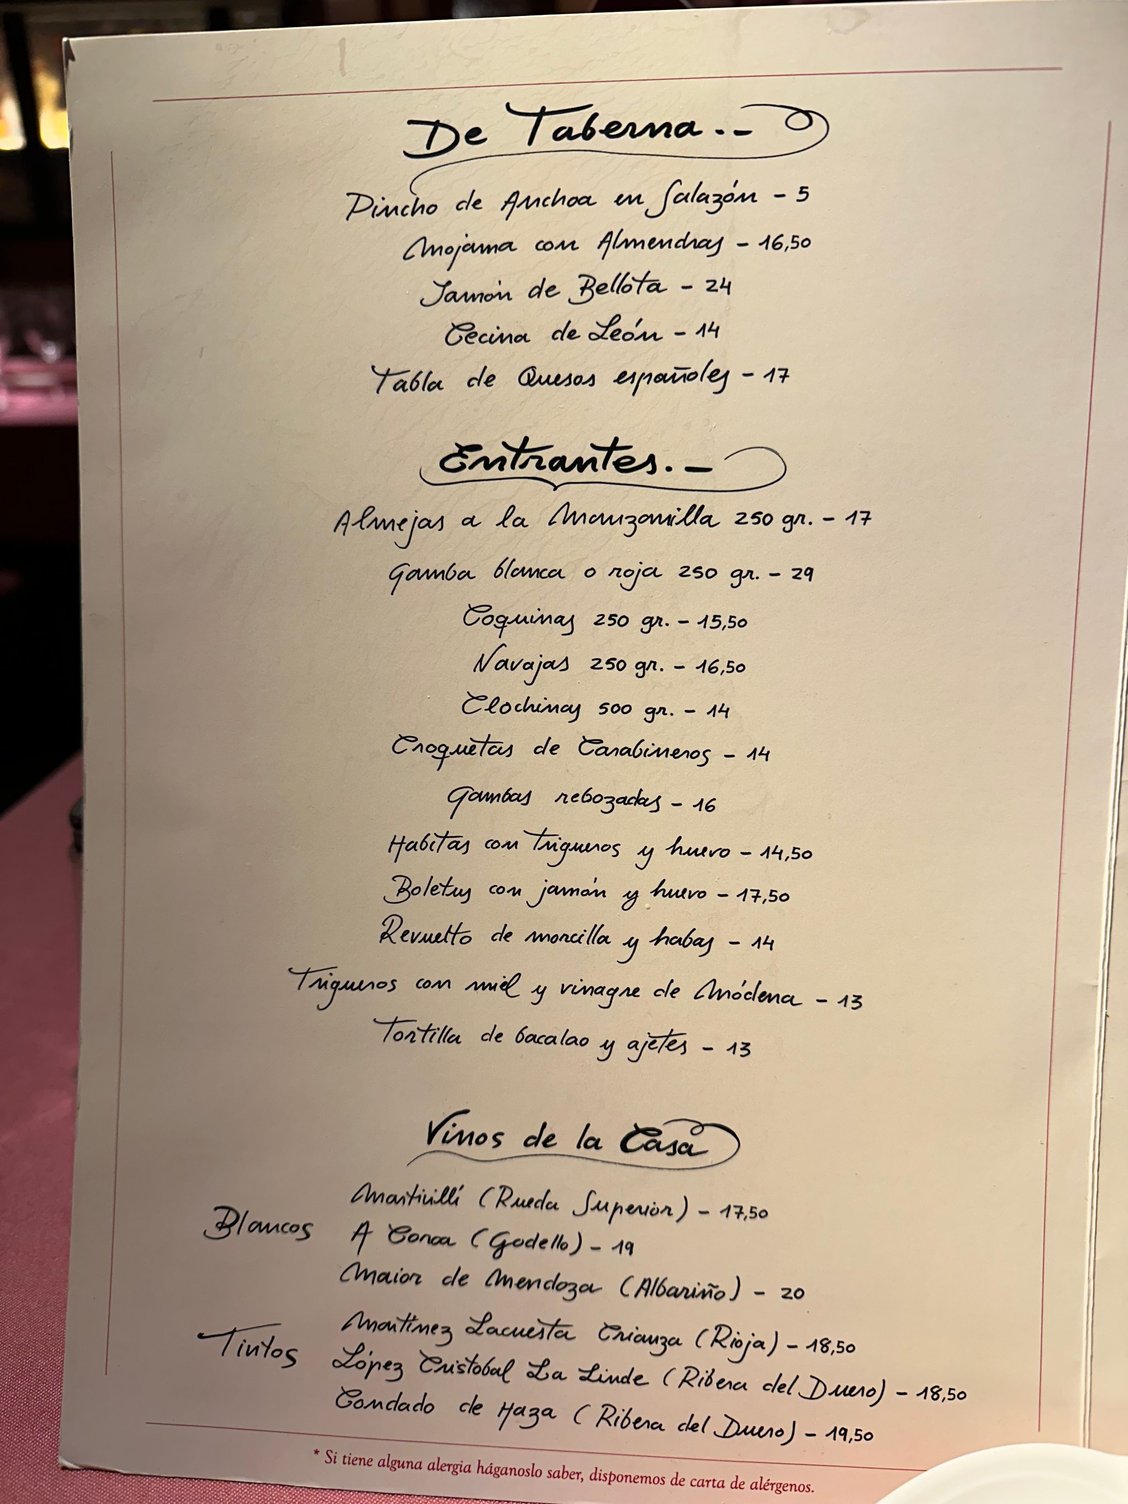 De Taberna.-
Pincho de Anchoa en Salazón - 5
Mojama con Almendras - 16,50
Jamón de Bellota - 24
Cecina de León - 14
Tabla de Quesos españoles - 17
Entrantes.-
Almejas a la Manzanilla 250 gr. - 17
Gamba blanca o roja 250 gr. - 29
Coquinas 250 gr. - 15,50
Navajas 250 gr. - 16,50
Clochinas 500 gr. - 14
Croquetas de Carabineros - 14
Gambas rebozadas - 16
Habitas con Trigueros y huevo - 14,50
Boletus con jamón y huevo - 17,50
Revuelto de morcilla y habas - 14
Trigueros con miel y vinagre de Módena - 13
Tortilla de bacalao y ajetes - 13
Vinos de la Casa
Blancos
Martivillí (Rueda Superior) - 17,50
A Coroa (Godello) - 19
Maior de Mendoza (Albariño) - 20
Tintos
Martínez Lacuesta Crianza (Rioja) - 18,50
López Cristobal La Linde (Ribera del Duero) - 18,50
Condado de Haza (Ribera del Duero) - 19,50
* Si tiene alguna alergia háganoslo saber, disponemos de carta de alérgenos.